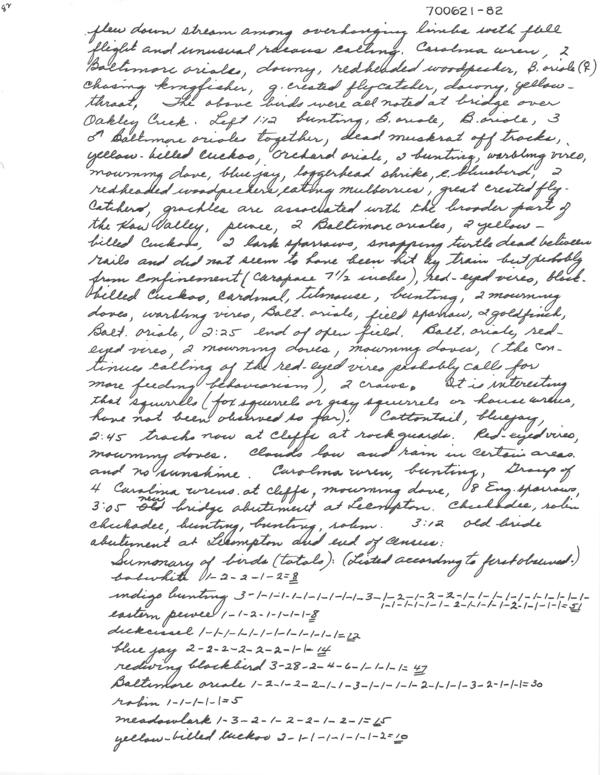 700621-82
flew down stream among overhanging limbs with full
flight and unusual raucus calling. Carolina wren, 2
Baltimore orioles, downy, redheaded woodpecker, B. oriole (♀)
chasing kingfisher, g. crested flycatcher, downy, yellow-
throat, The above birds were all noted at bridge over
Oakley Creek. Left 1:12 bunting, B. oriole, B. oriole, 3
♂ Baltimore orioles together, dead muskrat off tracks,
yellow-billed Cuckoo, Orchard oriole, 2 bunting, warbling vireo,
mourning dove, blue jay, loggerhead shrike, e. bluebird, 2
redheaded woodpeckers, eating mulberries, great crested fly-
catchers, grackles are associated with the broader part of
the Kaw Valley, pewee, 2 Baltimore orioles, 2 yellow-
billed Cuckoos, 2 lark sparrows, snapping turtle dead between
rails and did not seem to have been hit by train but probably
from confinement (Carapace 7 1/2 inches), red-eyed vireo, black-
billed Cuckoo, Cardinal, titmouse, bunting, 2 mourning
doves, warbling vireo, Balt. oriole, field sparrow, 2 goldfinch,
Balt. oriole, 2:25 end of open field. Balt. oriole, red-
eyed vireo, 2 mourning doves, mourning doves, (the con-
tinues calling of the red-eyed vireo probably calls for
more feeding behaviorism), 2 crows. It is interesting
that squirrels (fox squirrels or gray squirrels or house wrens,
have not been observed so far). Cottontail, bluejay,
2:45 tracks now at cliffs at rock guards. Red-eyed vireo,
mourning doves. Clouds low and rain in certain areas
and no sunshine. Carolina wren, bunting, Group of
4 Carolina wrens at cliffs, mourning dove, 8 Eng. sparrows,
3:05 new bridge abutement at Lecompton. Chickadee, robin
chickadee, bunting, bunting, robin. 3:12 old bride
abutement at Lecompton and end of census:
Summary of birds (totals): (Listed according to first observed.)
bobwhite 1-2-2-1-2=8
indigo bunting 3-1-1-1-1-1-1-1-1-3-1-2-1-2-2-1-1-1-1-1-1-1-1-1-
1-1-1-1-1-1-2-1-1-1-1-2-1-1-1-1=51
eastern pewee 1-1-2-1-1-1-1-8
dickcissel 1-1-1-1-1-1-1-1-1-1-1-1=12
blue jay 2-2-2-2-2-2-1-1-14
redwing blackbird 3-28-2-4-6-1-1-1-1= 47
Baltimore oriole 1-2-1-2-2-1-1-3-1-1-1-1-2-1-1-1-3-2-1-1-1=30
robin 1-1-1-1-1=5
meadowlark 1-3-2-1-2-2-1-2-1=15
yellow-billed cuckoo 2-1-1-1-1-1-1-2=10